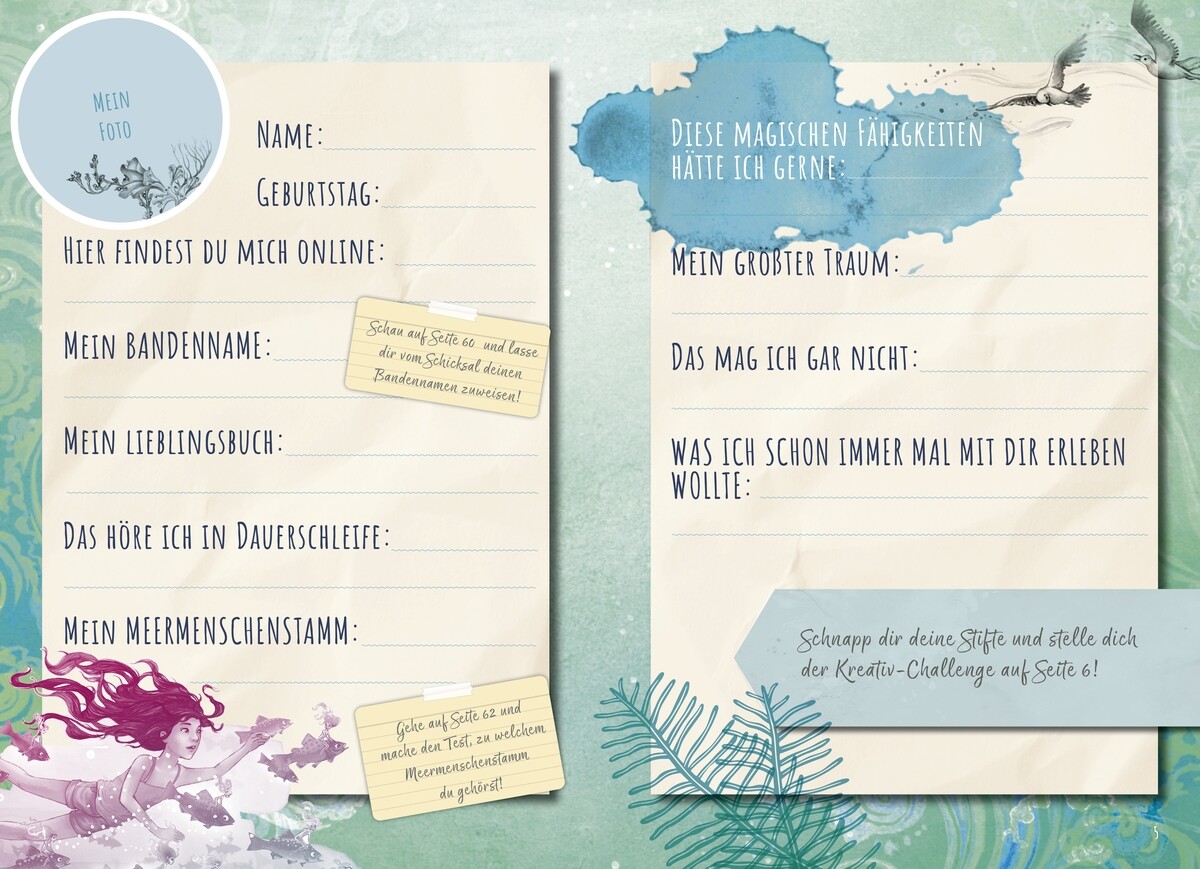 Mein
Foto
Name:
Geburtstag:
Hier findest du mich online:
Mein BANDENNAME:
Schau auf Seite 60 und lasse
dir vom Schicksal deinen
Bandennamen zuweisen!
Mein Lieblingsbuch:
Das höre ich in Dauerschleife:
Mein MEERMENSCHENSTAMM:
Gehe auf Seite 62 und
mache den Test, zu welchem
Meermenschenstamm
du gehörst!
Diese magischen Fähigkeiten
hätte ich gerne:
Mein größter Traum:
Das mag ich gar nicht:
WAS ICH SCHON IMMER MAL MIT DIR ERLEBEN
WOLLTE:
Schnapp dir deine Stifte und stelle dich
der Kreativ-Challenge auf Seite 6!
5